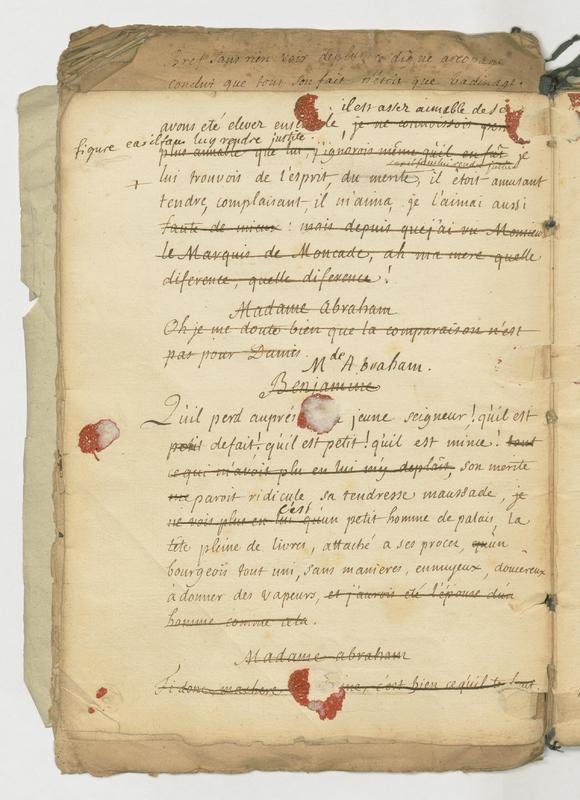 Bref sans rien voir
conclut que tout son fait n'étoit que badinage.
il est assez aimable de
avons eté elever ens de, je ne connoissois
figure car il faut luy rendre justice
plus aimable que lui, j'ignorois même qu'il en fût, je
car il faut lui rendre justice
lui trouvois de l'esprit, du merite, il étoit amusant
tendre, complaisant, il m'aima, je l'aimai aussi
faute de mieux : mais depuis que j'ai vu Monsieur
le Marquis de Moncade, ah ma mere quelle
diference, quelle diference !
Madame Abraham
Oh je me doute bien que la comparaison n'est
pas pour Damis.
Mde Abraham.
Benjamine
Qu'il perd auprés jeune seigneur ! qu'il est
petit defait ! qu'il est petit ! qu'il est mince ! tout
ce qui m'avoit plu en lui m'y deplait, son merite
me paroit ridicule, sa tendresse maussade, je
c'est
ne vois plus en lui qu'un petit homme de palais, la
tête pleine de livres, attaché a ses procez, qu'un
bourgeois tout uni, sans manieres, ennuyeux, doucereux
à donner des vapeurs, et j'aurois été l'épouse d'un
homme comme cela.
Madame abraham
Fi donc, ma chere ine, c'est bien ce qu'il te faut.